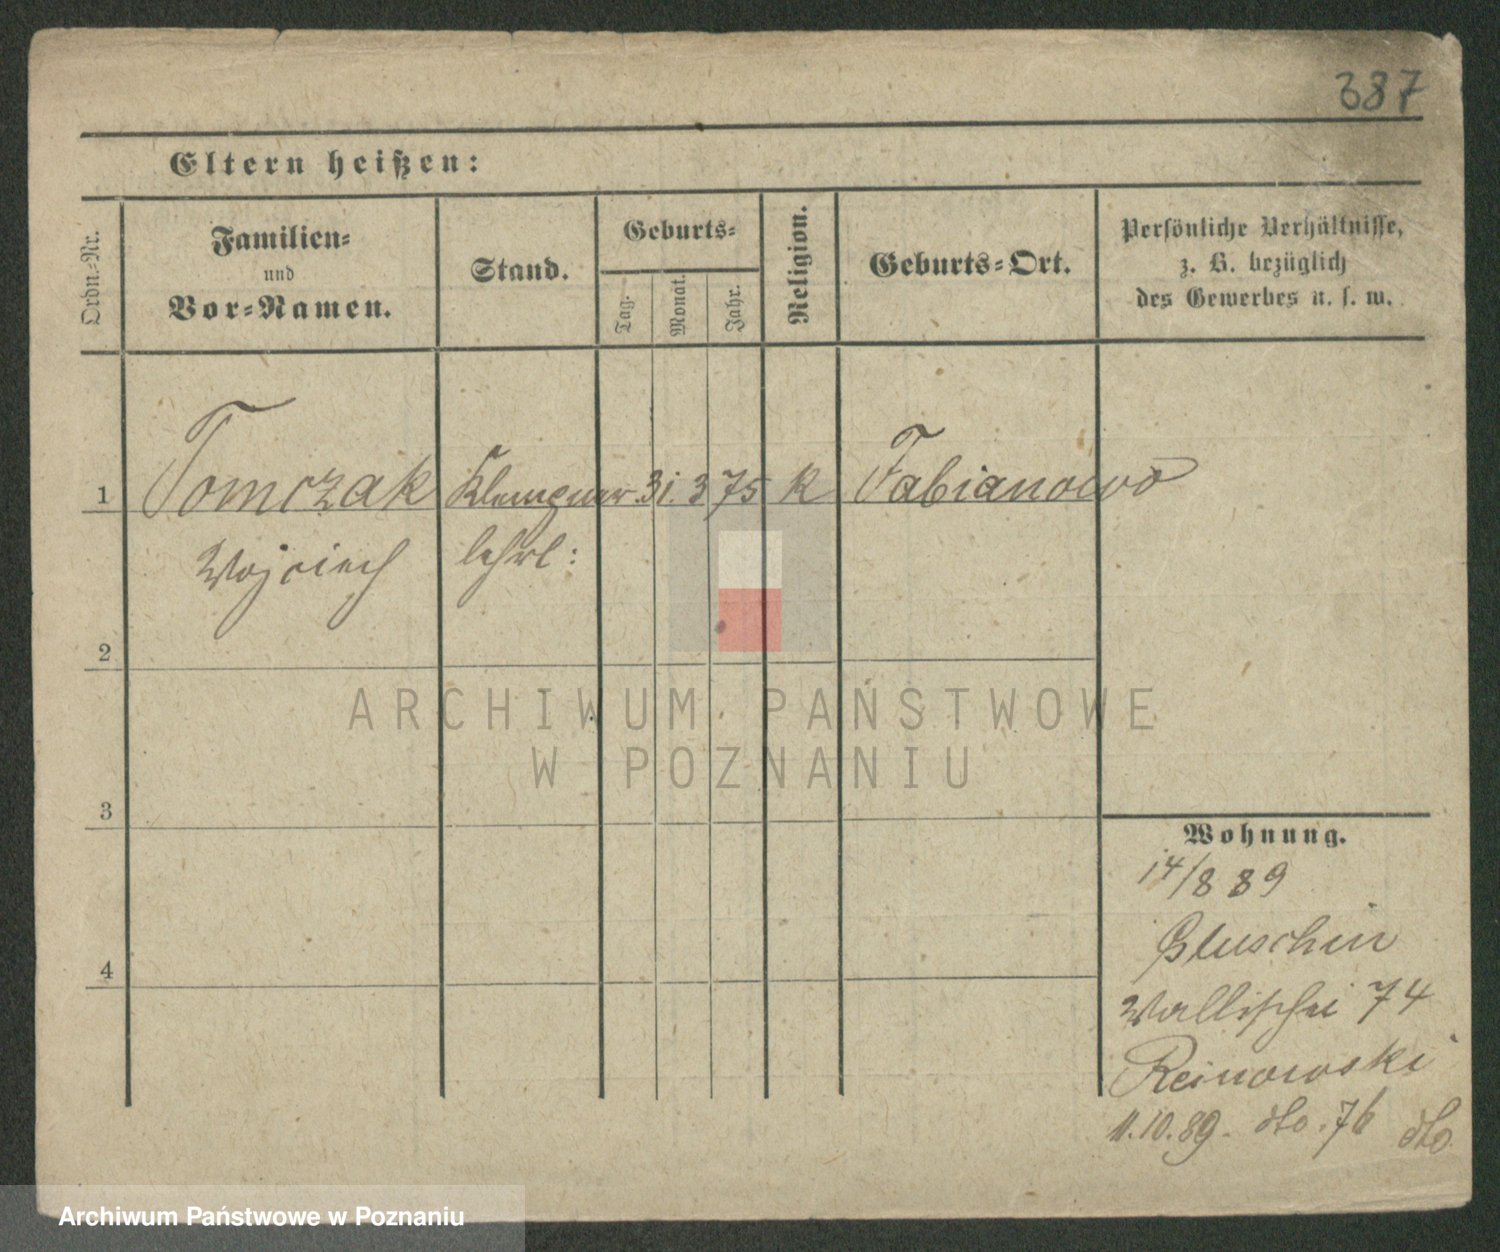 387
Eltern heißen:
Ordn.-Nr.
Familien-
und
Vor-Namen.
Stand.
Geburts-
Tag.
Monat.
Jahr.
Religion.
Geburts-Ort.
Persönliche Verhältnisse,
z. B. bezüglich
des Gewerbes u. s. w.
1 Tomczak Klempner 31. 3 75 K Fabianowo
Wojciech lehrl:
2
3
4
Wohnung.
14/8 89
Gluschin
Wallischei 74
Reinowski
11.10.89. dto. 76 dto
ARCHIWUM PAŃSTWOWE
W POZNANIU
Archiwum Państwowe w Poznaniu